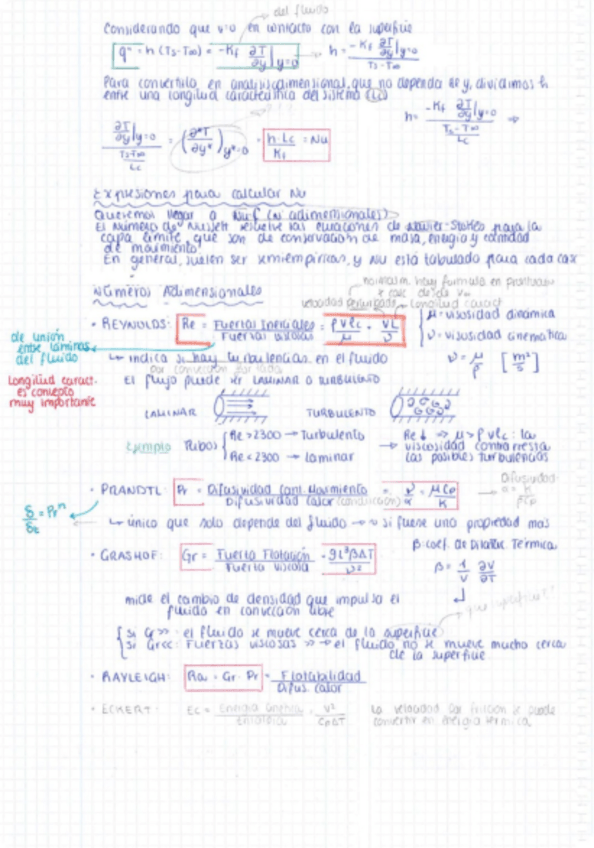 del fluido
Considerando que v=0 en contacto con la superficie
q" = h (Ts-T∞) = -Kf ∂T/∂y|y=0 → h = -Kf ∂T/∂y|y=0 / Ts-T∞
Para convertirlo en analisis dimensional, que no dependa de y, dividimos h
entre una longitud característica del sistema (Lc)
h = -Kf ∂T/∂y|y=0 / Ts-T∞ / Lc ⇒
∂T/∂y|y=0 / Ts-T∞ / Lc = (∂*T/∂y*)y*=0 = h Lc/Kf = Nu
Expresiones para calcular Nu
Queremos llegar a (nº adimensionales)
El Número de Nusselt resuelve las ecuaciones de Navier-Stokes para la
capa límite, que son de conservación de masa, energía y cantidad
de movimiento
En general, suelen ser semiempíricas, y Nu está tabulado para cada caso
Números Adimensionales
normalm. hay formula en
velocidad Longitud caract
• REYNOLDS: Re = Fuerzas Inerciales / Fuerzas viscosas = ρVLc/μ = VL/ν
μ = viscosidad dinámica
ν = viscosidad cinematica
ν = μ/ρ [m²/s]
de unión
entre láminas
del fluido
↳ indica si hay turbulencias en el fluido
por convección forzada
Longitud caract.
es concepto
muy importante
El flujo puede ser LAMINAR o TURBULENTO
LAMINAR TURBULENTO
Ejemplo Tubos { Re >2300 → Turbulento
Re < 2300 → Laminar
Re↓ ⇒ μ > ρ v Lc : la
viscosidad contrarresta
las posibles turbulencias
• PRANDTL: Pr = Difusividad Cant. Movimiento / Difusividad calor (conducción) = ν/α = μCp/K
Difusividad
α = K/ρCp
δ/δt = Prⁿ
↳ único que solo depende del fluido → si fuese una propiedad mas
• GRASHOF: Gr = Fuerza Flotación / Fuerza Viscosa = gL³βΔT/ν²
β: coef. de Dilatac. Térmica
β = 1/V ∂V/∂T
mide el cambio de densidad que impulsa el
fluido en convección libre
que superficie??
si Gr>> : el fluido se mueve cerca de la superficie
si Gr<< : Fuerzas viscosas >> → el fluido no se mueve mucho cerca
de la superficie
• RAYLEIGH: Ra = Gr · Pr = Flotabilidad / Difus. calor
• ECKERT: EC = Energía Cinética / Entalpía = V²/CpΔT
La velocidad por fricción se puede
convertir en energía térmica.